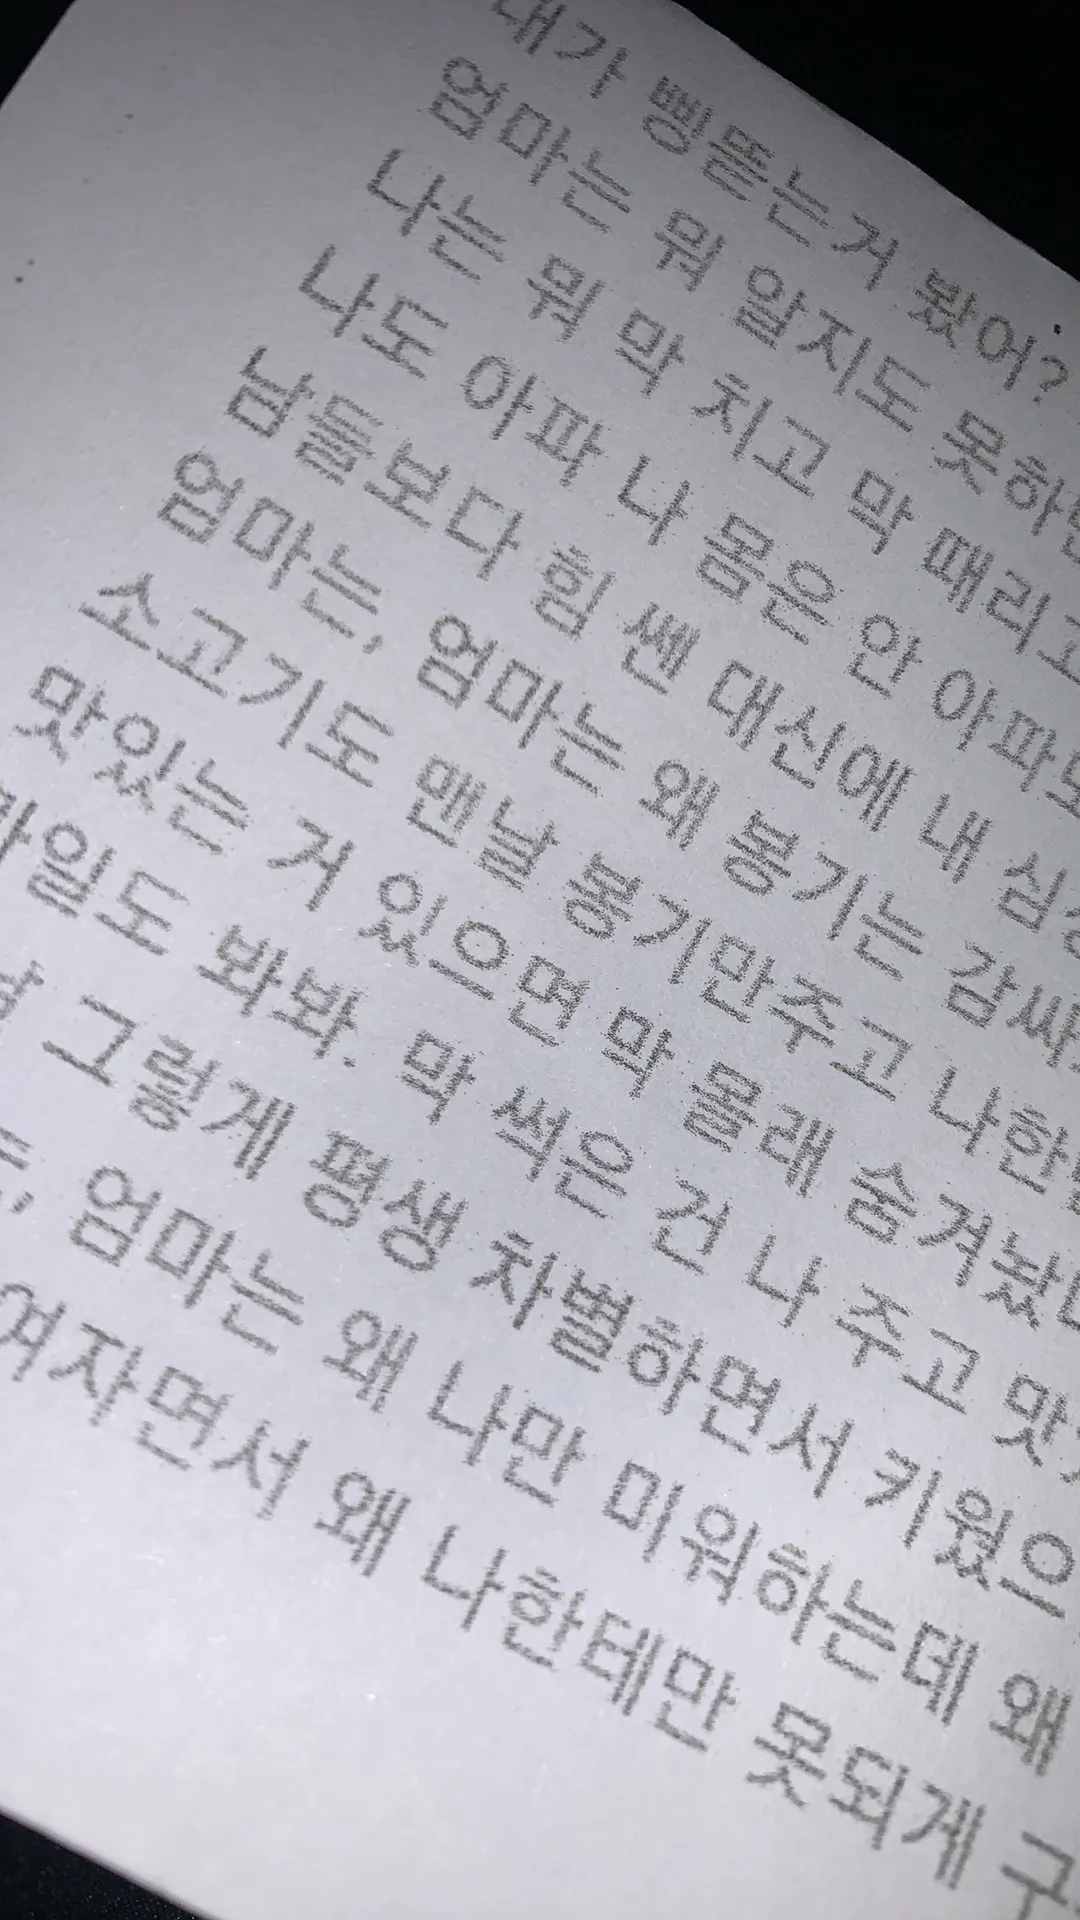 내가 삥뜯는거 봤어?
엄마는 뭐 알지도
나는 뭐 막 치고 막 때리고
나도 아파 나 몸은 안
남들보다 힘 쎈 대신에 내
엄마는, 엄마는 왜 봉기는
소고기도 맨날 봉기만주고
맛있는 거 있으면 막 몰래
봐봐. 막 썩은 건 나 주고
그렇게 평생 차별하면서
엄마는 왜 나만 미워하는데 왜
여자면서 왜 나한테만 못되게